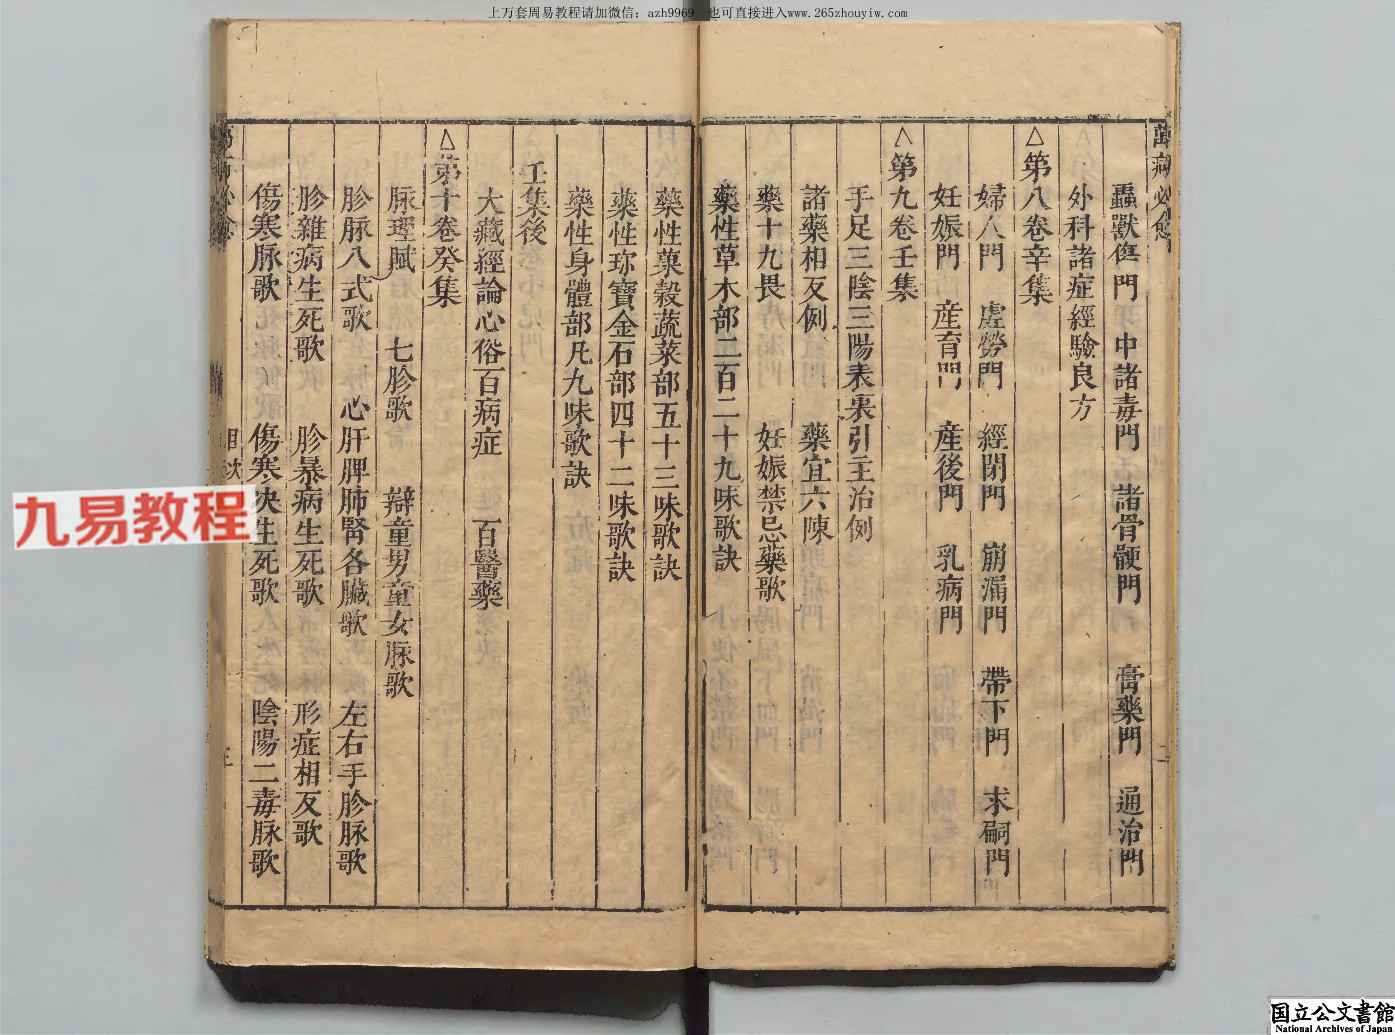 上万套周易教程请加微信：azh9969　也可直接进入www.265zhouyiw.com
萬病必愈
蟲獸傷門　中諸毒門　諸骨骾門　膏藥門　通治門
外科諸症經驗良方
△第八卷辛集
婦人門　虛勞門　經閉門　崩漏門　帶下門　求嗣門
妊娠門　産育門　產後門　乳病門
△第九卷壬集
手足三陰三陽表裏引主治例
諸藥相反例　藥宜六陳
藥十九畏　妊娠禁忌藥歌
藥性草木部二百二十九味歌訣
藥性菓穀蔬菜部五十三味歌訣
藥性珎寶金石部四十二味歌訣
藥性身體部凡九味歌訣
壬集後
大藏經論心俗百病症　百醫藥
△第十卷癸集
脉理賦　七胗歌　辯童男童女脉歌
胗脉八式歌　心肝脾肺腎各臟歌　左右手胗脉歌
胗雜病生死歌　胗暴病生死歌　形症相反歌
傷寒脉歌　傷寒决生死歌　陰陽二毒脉歌
目次
九易教程
国立公文書館
National Archives of Japan